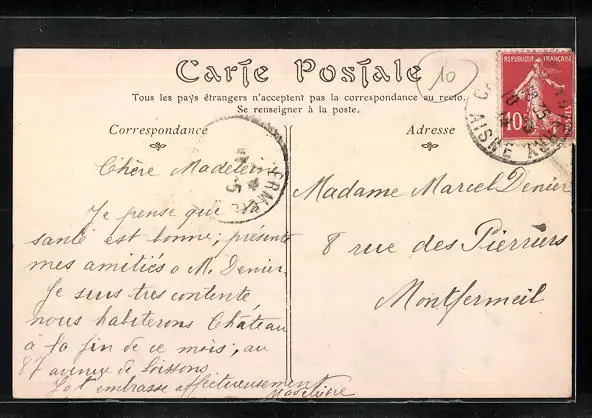 Carte Postale
Tous les pays étrangers n'acceptent pas la correspondance au recto.
Se renseigner à la poste.
10
RÉPUBLIQUE FRANÇAISE
10
POSTES
AISNE
Correspondance
Adresse
Chère Madeleine
Je pense que
santé est bonne; présente
mes amitiés à M. Denier,
Je suis très contente
nous habiterons Château
à la fin de ce mois; au
87 avenue de Soissons
Je t embrasse affectueusement
Madame Marcel Denier
8 rue des Pierriers
Montfermeil